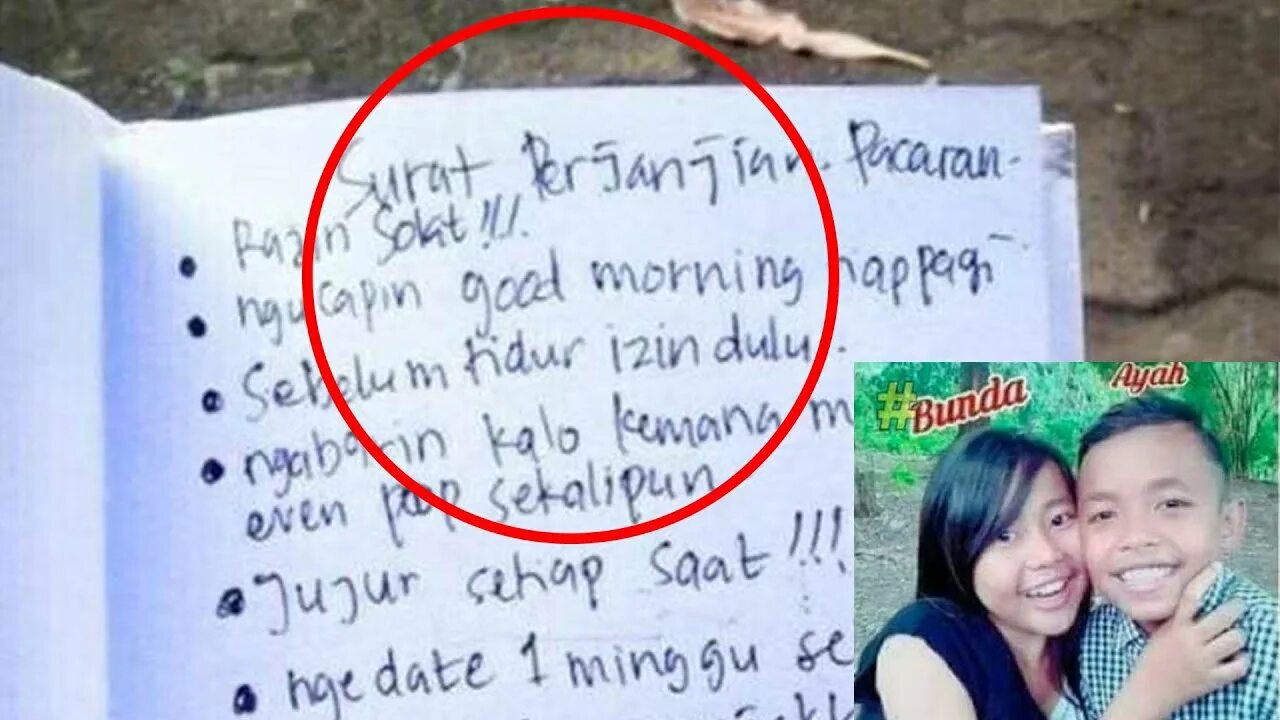 Surat Perjanjian Pacaran-
Razin Solat!!!
ngucapin good morning iap pagi
Sebelum tidur izin dulu.
ngabarin kalo kemana m
even poop sekalipun
Jujur setiap saat!!!
ngedate 1 minggu se
#Bunda
Ayah